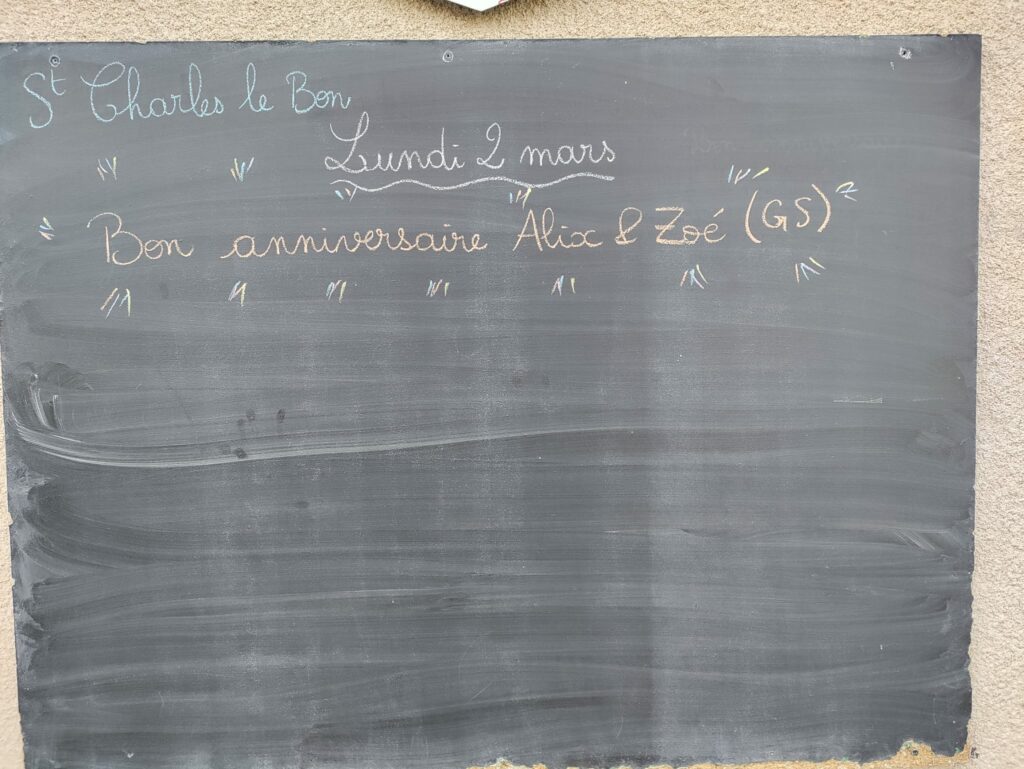 St Charles le Bon
Lundi 2 mars
Bon anniversaire Alix & Zoé (GS)